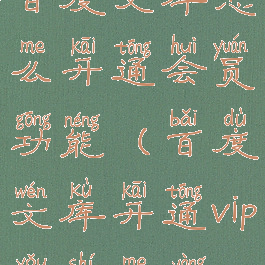 me kāi tōng huì yuán
么开通会员
gōng néng bǎi dù
功能（百度
wén kù kāi tōng
文库开通vip